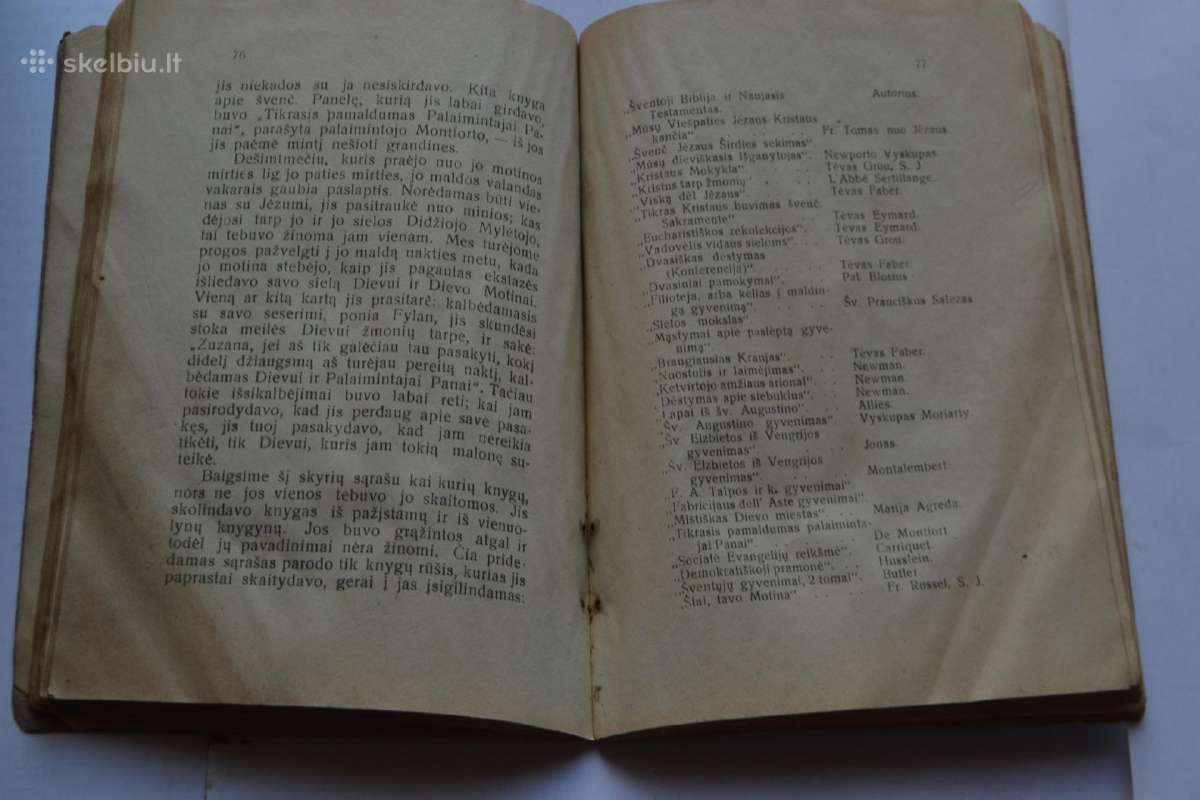 skelbiu.lt
76
jis niekados su ja nesiskirdavo. Kita knyga
apie švenč. Panelę, kurią jis labai girdavo,
buvo „Tikrasis pamaldumas Palaimintajai Pa-
nai", parašyta palaimintojo Montforto, — iš jos
jis paėmė mintį nešioti grandines.
Dešimtmečiu, kuris praėjo nuo jo motinos
mirties lig jo paties mirties, jo maldos valandas
vakarais gaubia paslaptis. Norėdamas būti vie-
nas su Jėzumi, jis pasitraukė nuo minios; kas
dėjosi tarp jo ir jo sielos Didžiojo Mylėtojo,
tai tebuvo žinoma jam vienam. Mes turėjome
progos pažvelgti į jo maldą nakties metu, kada
jo motina stebėjo, kaip jis pagautas ekstazės
išliedavo savo sielą Dievui ir Dievo Motinai.
Vieną ar kitą kartą jis prasitarė: kalbėdamasis
su savo seserimi, ponia Fylan, jis skundėsi
stoka meilės Dievui žmonių tarpe, ir sakė:
„Zuzana, jei aš tik galėčiau tau pasakyti, kokį
didelį džiaugsmą aš turėjau pereitą naktį, kal-
bėdamas Dievui ir Palaimintajai Panai". Tačiau
tokie išsikalbėjimai buvo labai reti; kai jam
pasirodydavo, kad jis perdaug apie save pasa-
kęs, jis tuoj pasakydavo, kad jam nereikia
tikėti, tik Dievui, kuris jam tokią malonę su-
teikė.
Baigsime šį skyrių sąrašu kai kurių knygų,
nors ne jos vienos tebuvo jo skaitomos. Jis
skolindavo knygas iš pažįstamų ir iš vienuo-
lynų knygynų. Jos buvo grąžintos atgal ir
todėl jų pavadinimai nėra žinomi. Čia pride-
damas sąrašas parodo tik knygų rūšis, kurias jis
paprastai skaitydavo, gerai į jas įsigilindamas:
77
Autorius:
Šventoji Biblija ir Naujasis
Testamentas.
„Mūsų Viešpaties Jėzaus Kristaus
kančia" . . . . Fr. Tomas nuo Jėzaus.
„Švenč. Jėzaus Širdies sekimas"
„Mūsų dieviškasis išganytojas". Newporto Vyskupas.
„Kristaus Mokykla" . . . Tėvas Grou, S. J.
„Kristus tarp žmonių" . . . L'Abbé Sertillange.
„Viską dėl Jėzaus" . . . Tėvas Faber.
„Tikras Kristaus buvimas švenč.
Sakramente" . . . Tėvas Eymard.
„Eucharistiškos rekolekcijos". Tėvas Eymard.
„Vadovėlis vidaus sieloms". . . Tėvas Grou.
„Dvasiškas dėstymas
(Konferencija)" . . . Tėvas Faber.
„Dvasiniai pamokymai". . . Pal. Blosius.
„Filioteja, arba kelias į maldin-
gą gyvenimą" . . . Šv. Pranciškus Salezas
„Sielos mokslas" . . .
„Mąstymai apie paslėptą gyve-
nimą".
„Brangiausias Kraujas". . . Tėvas Faber.
„Nuostolis ir laimėjimas". . Newman.
„Ketvirtojo amžiaus arionai". Newman.
„Dėstymas apie stebuklus". Newman.
„Lapai iš šv. Augustino". . Allies.
„Šv. Augustino gyvenimas". Vyskupas Moriarty.
„Šv. Elzbietos iš Vengrijos
gyvenimas". . . . Jonas.
„Šv. Elzbietos iš Vengrijos
gyvenimas". . . . Montalembert.
„P. A. Taipos ir k. gyvenimai"
„Fabricijaus dell' Aste gyvenimai".
„Mistiškas Dievo miestas". . Matija Agreda.
„Tikrasis pamaldumas palaiminta-
jai Panai". . . . De Montfort
„Socialė Evangelijų reikšmė". Carriquet.
„Demokratiškoji pramonė". . Husslein.
„Šventųjų gyvenimai, 2 tomai". Butler.
„Štai, tavo Motina" . . . Fr. Rossel, S. J.